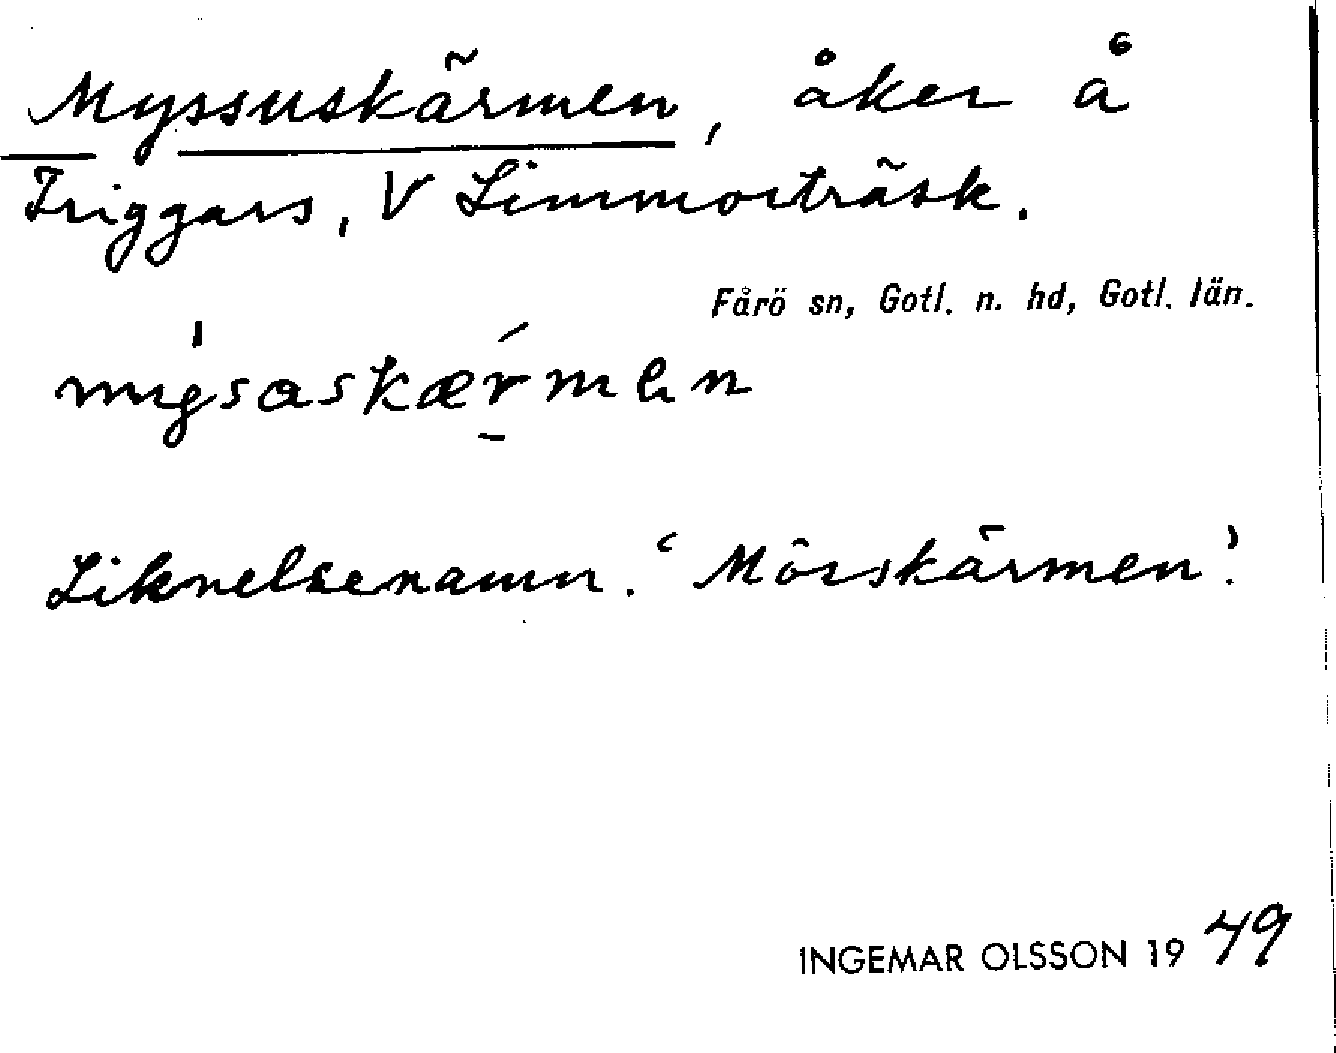 Myssuskärmen, åker å
Friggars, V Limmorträsk.
Fårö sn, Gotl. n. hd, Gotl. län.
Liknelsenamn. ‘Mösskärmen’.
INGEMAR OLSSON 1949